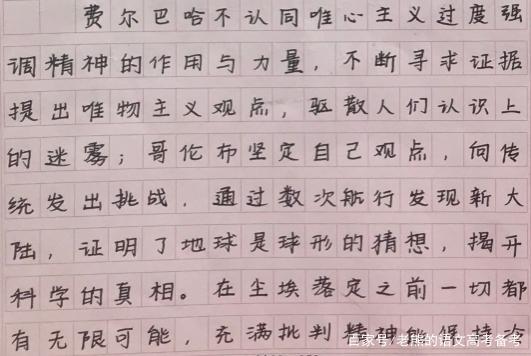 费尔巴哈不认同唯心主义过度强
调精神的作用与力量，不断寻求证据
提出唯物主义观点，驱散人们认识上
的迷雾；哥伦布坚定自己观点，向传
统发出挑战，通过数次航行发现新大
陆，证明了地球是球形的猜想，揭开
科学的真相。在尘埃落定之前一切都
有无限可能，充满批判精神能保持
百家号/老熊的语文高考备考